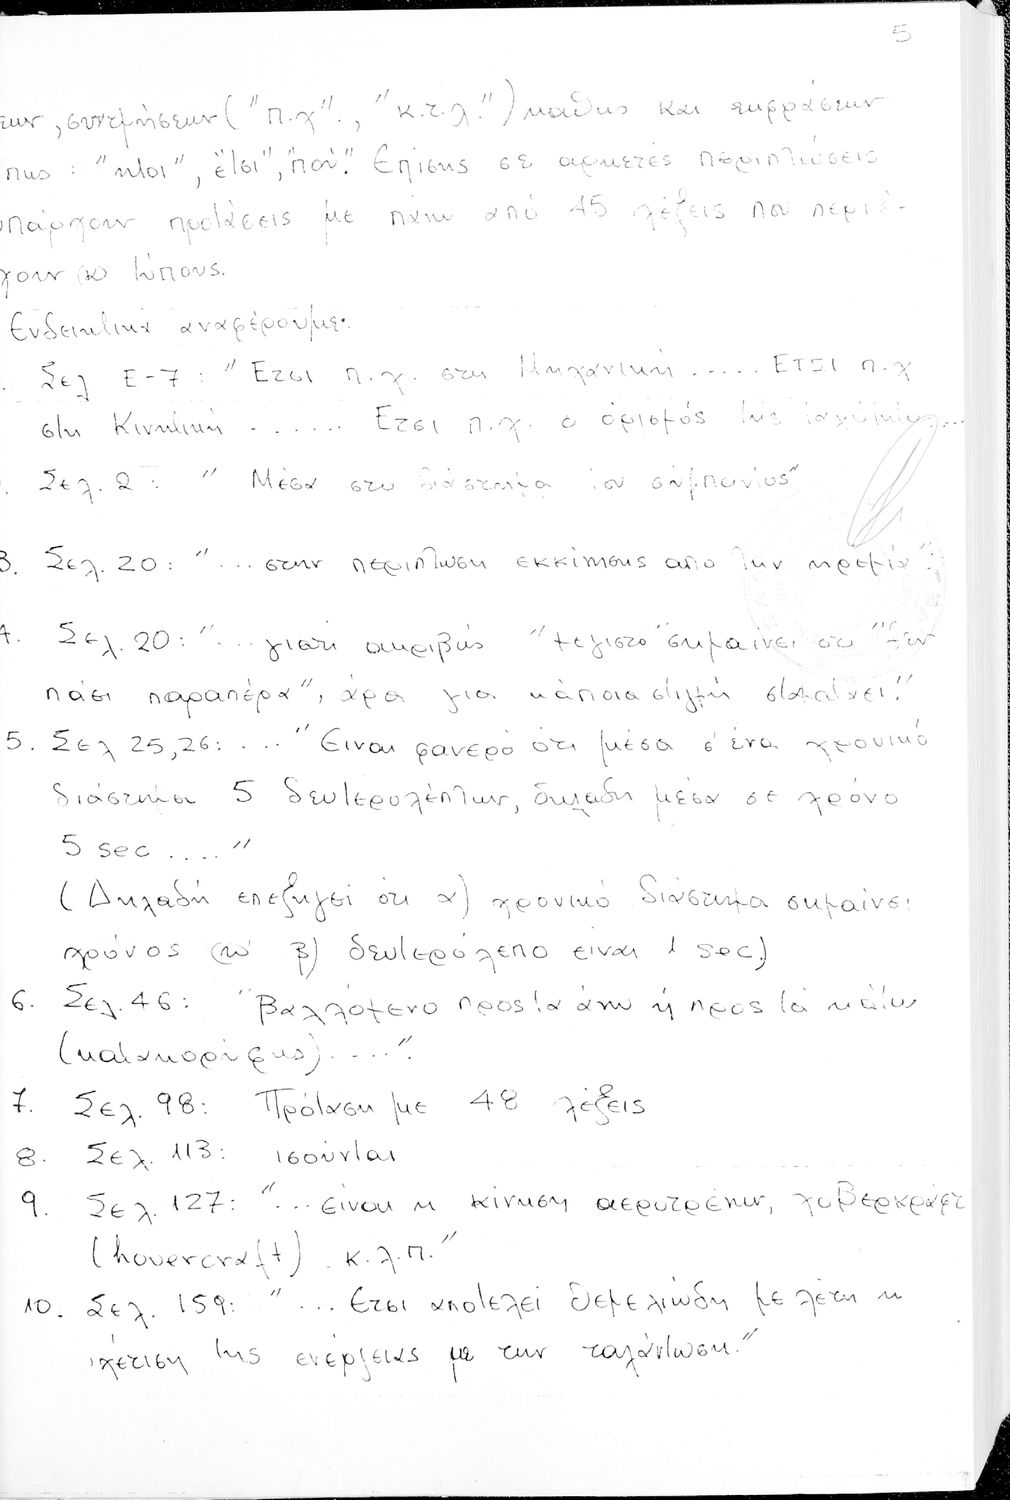 5
εων, συντμήσεων ("π.χ"., "κ.τ.λ.") καθώς και εκφράσεων
πως : "ήτοι", "έτσι", "που". Επίσης σε αρκετές περιπτώσεις
υπάρχουν προτάσεις με πάνω από 45 λέξεις που περιέ-
χουν και τύπους.
Ενδεικτικά αναφέρουμε:
. Σελ Ε-7 : "Ετσι π.χ. στη Μηχανική ..... ΕΤΣΙ π.χ
στη Κινητική ...... Ετσι π.χ. ο ορισμός της ταχύτητας...
. Σελ. 2 : " Μέσα στο διάστημα του σύμπαντος"
3. Σελ. 20 : "...στην περίπτωση εκκίνησης από την ηρεμία".
4. Σελ. 20: "... γιατί ακριβώς "μέγιστο" σημαίνει ότι "δεν
πάει παραπέρα", άρα για κάποια στιγμή σταματάει."
5. Σελ 25,26: ... "Ειναι φανερό ότι μέσα σ' ένα χρονικό
διάστημα 5 δευτερολέπτων, δηλαδή μέσα σε χρόνο
5 sec ...."
(Δηλαδή επεξηγεί ότι α) χρονικό διάστημα σημαίνει
χρόνος και β) δευτερόλεπο είναι 1 sec.)
6. Σελ. 46 : "Βαλλόμενο προς τα άνω ή προς τά κάτω
(κατακορύφως) ....".
7. Σελ. 98: Πρόταση με 48 λέξεις
8. Σελ. 113: ισούνται
9. Σελ. 127: "... είναι η κίνηση αεροτρένων, χόβερκράφτ
(hovercraft) κ.λ.π."
10. Σελ. 159: "... Ετσι αποτελεί θεμελιώδη μελέτη η
χέτιση της ενέργειας με την ταλάντωση."